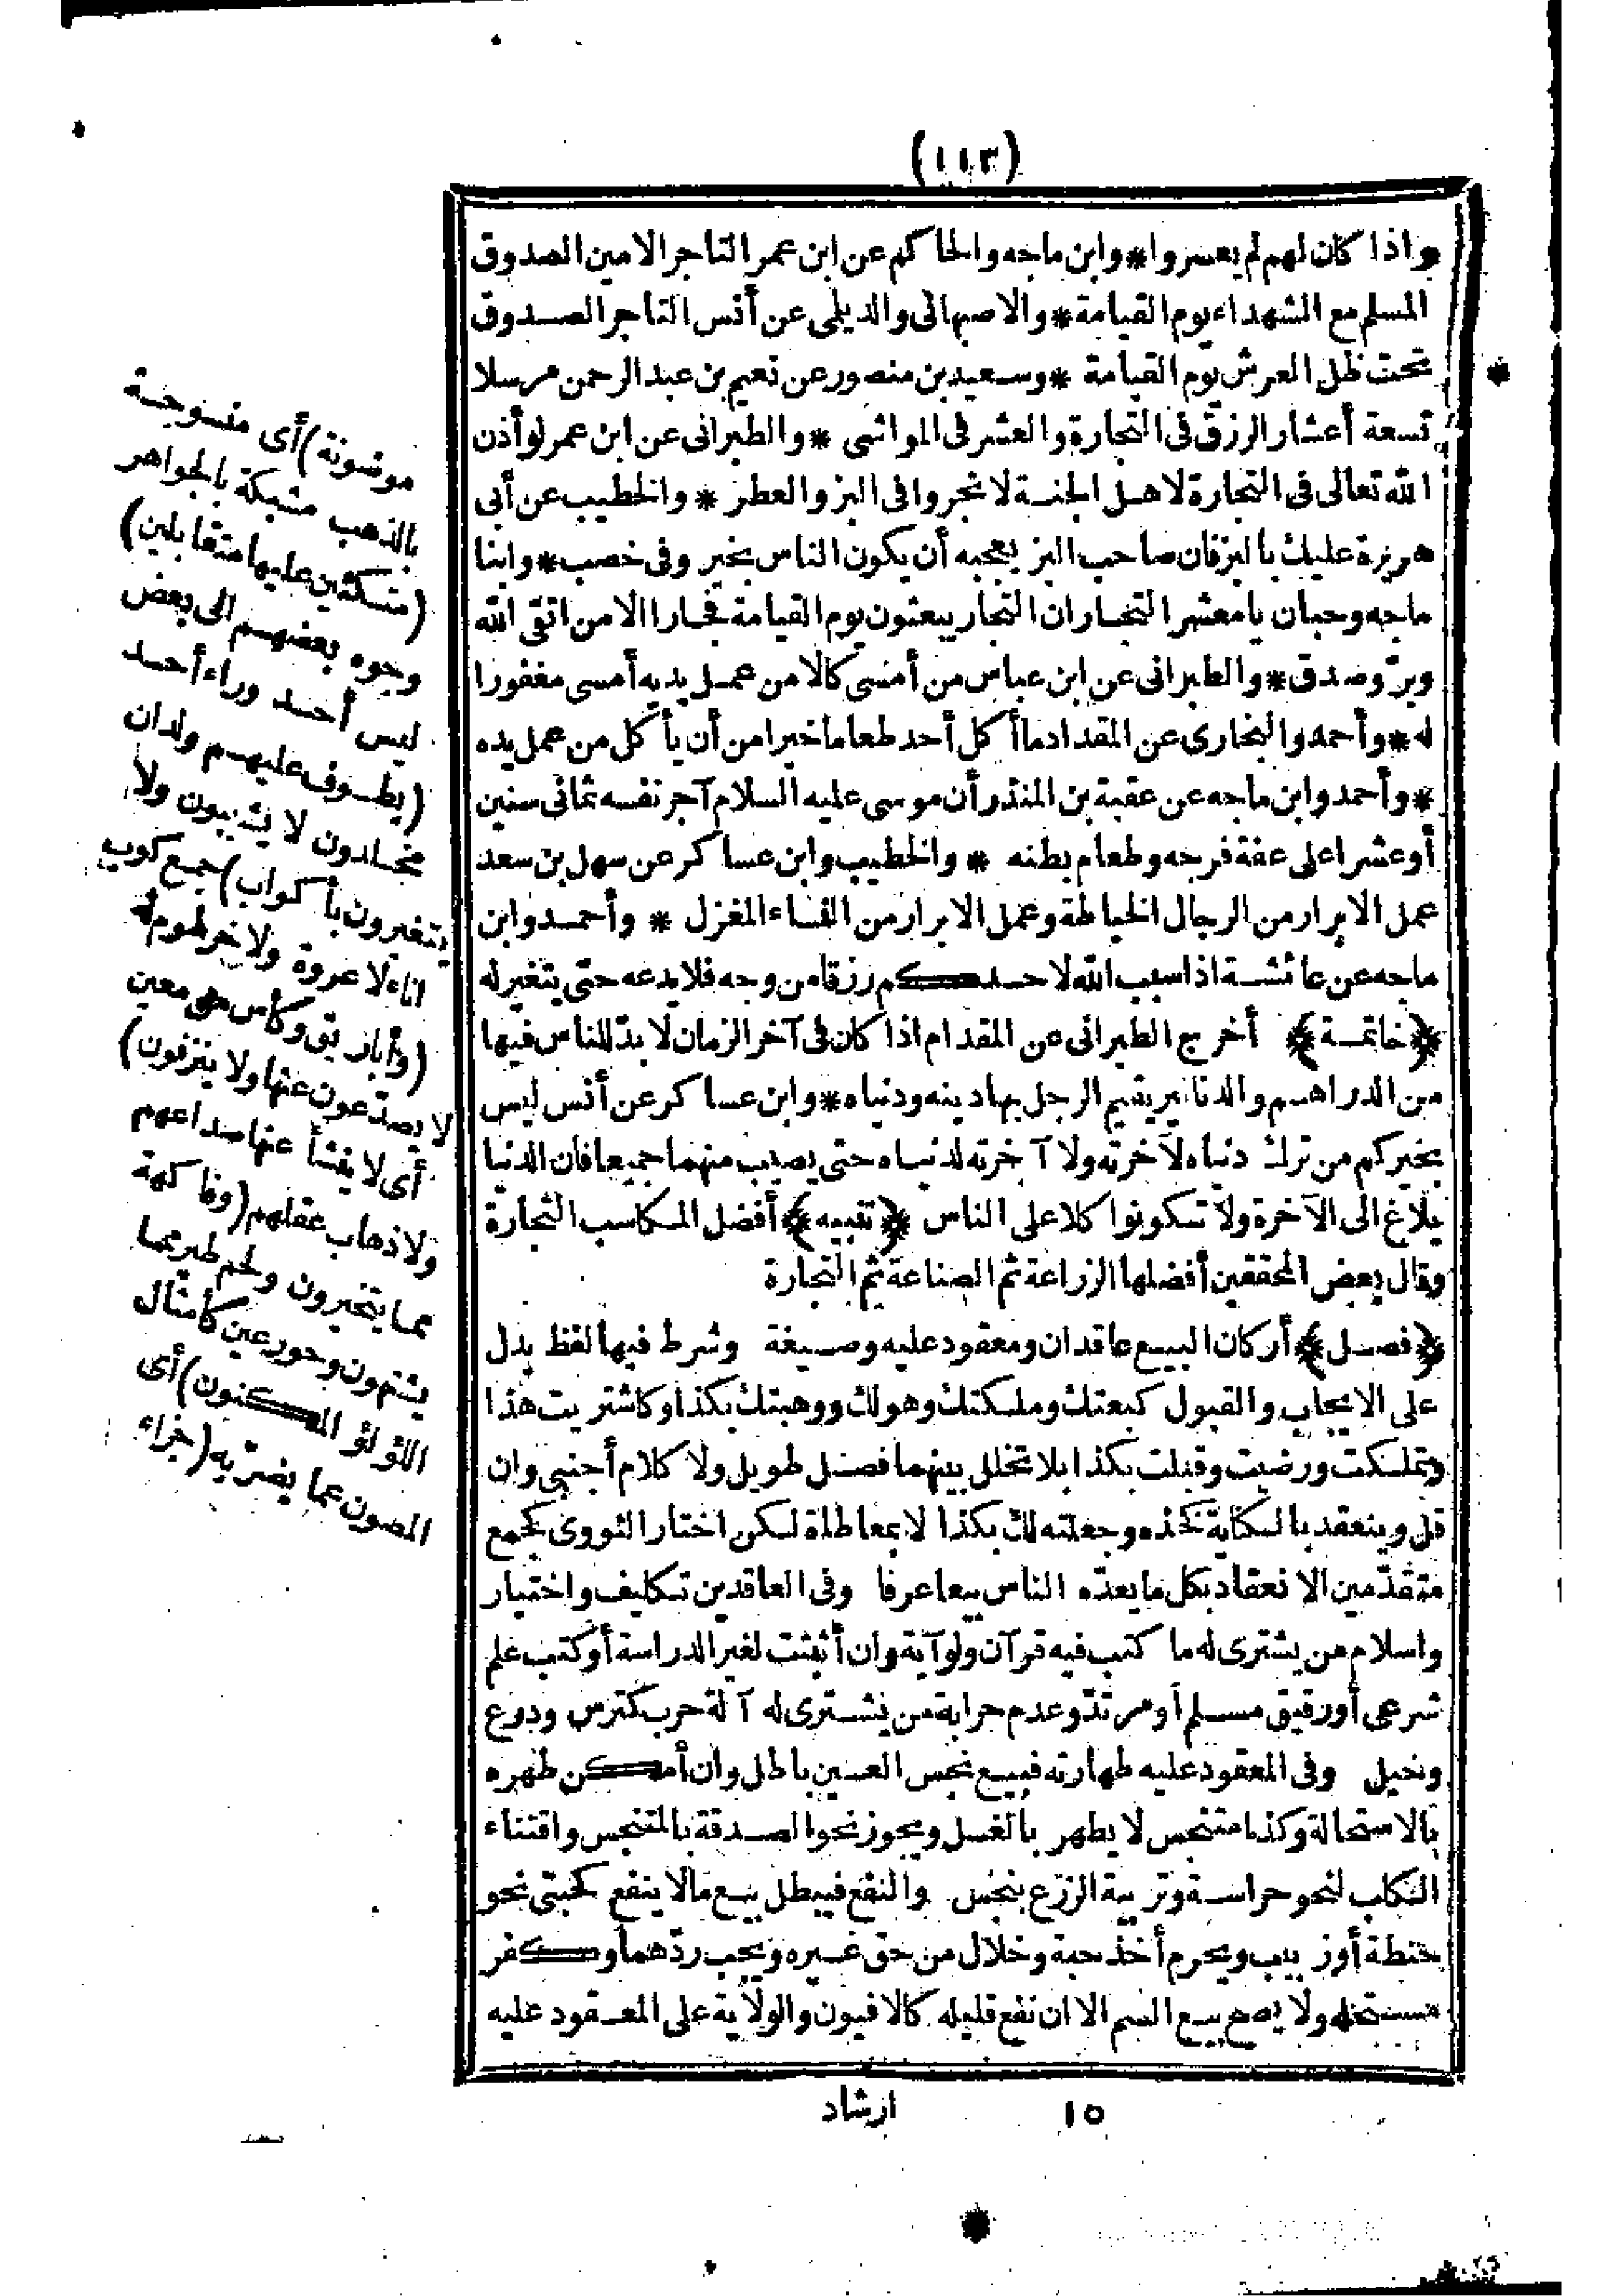 (١١٣)
واذا كان لهم لم يعسروا * وابن ماجه والحاكم عن ابن عمر التاجر الامين الصدوق
المسلم مع الشهداء يوم القيامة * والاصبهانى والديلمى عن أنس التاجر الصدوق
تحت ظل العرش يوم القيامة * وسعيد بن منصور عن نعيم بن عبد الرحمن مرسلا
تسعة أعشار الرزق فى التجارة والعشر فى المواشى * والطبرانى عن ابن عمر لو أذن
الله تعالى فى التجارة لاهل الجنة لاتجروا فى البز والعطر * والخطيب عن أبى
هريرة عليك بالبز فان صاحب البز يعجبه أن يكون الناس بخير وفى خصب * وابنا
ماجه وحبان يا معشر التجار ان التجار يبعثون يوم القيامة فجارا الا من اتقى الله
وبرّ وصدق * والطبرانى عن ابن عباس من أمسى كالا من عمل يديه أمسى مغفورا
له * وأحمد والبخارى عن المقداد ما أكل أحد طعاما خيرا من أن يأكل من عمل يده
* وأحمد وابن ماجه عن عقبة بن المنذر أن موسى عليه السلام آجر نفسه ثمانى سنين
أو عشرا على عفة فرجه وطعام بطنه * والخطيب وابن عساكر عن سهل بن سعد
عمل الابرار من الرجال الخياطة وعمل الابرار من النساء المغزل * وأحمد وابن
ماجه عن عائشة اذا سبب الله لاحدكم رزقا من وجه فلا يدعه حتى يتغير له
﴿خاتمة﴾ أخرج الطبرانى عن المقدام اذا كان فى آخر الزمان لا بدّ للناس فيها
من الدراهم والدنانير يقيم الرجل بها دينه ودنياه * وابن عساكر عن أنس ليس
بخيركم من ترك دنياه لآخرته ولا آخرته لدنياه حتى يصيب منهما جميعا فان الدنيا
بلاغ الى الآخرة ولا تكونوا كلا على الناس ﴿تنبيه﴾ أفضل المكاسب التجارة
وقال بعض المحققين أفضلها الزراعة ثم الصناعة ثم التجارة
﴿فصل﴾ أركان البيع عاقدان ومعقود عليه وصيغة وشرط فيها لفظ يدل
على الايجاب والقبول كبعتك وملكتك وهو لك ووهبتك بكذا وكاشتريت هذا
وتملكت ورضيت وقبلت بكذا بلا تخلل بينهما فصل طويل ولا كلام أجنبى وان
قل وينعقد بالكناية كخذه وجعلته لك بكذا لا بمعاطاة لكن اختار النووى كجمع
متقدّمين الانعقاد بكل ما يعدّه الناس بيعا عرفا وفى العاقدين تكليف واختيار
واسلام من يشترى له ما كتب فيه قرآن ولو آية وان أثبتت لغير الدراسة أو كتب علم
شرعى أو رقيق مسلم أو مرتدّ وعدم حرابة من يشترى له آلة حرب كترس ودرع
وخيل وفى المعقود عليه طهارته فبيع نجس العين باطل وان أمكن طهره
بالاستحالة وكذا متنجس لا يطهر بالغسل ويجوز نحو الصدقة بالمتنجس واقتناء
الكلب لنحو حراسة وتربية الزرع بنجس والنفع فيبطل بيع ما لا ينفع كحبتى نحو
حنطة أو زبيب ويحرم أخذ حبة وخلال من حق غيره ويجب ردّهما وكفر
مستحله ولا يصح بيع السم الا ان نفع قليله كالافيون والولاية على المعقود عليه
١٥ ارشاد
موضونة) أى منسوجة
بالذهب مشبكة بالجواهر
(متكئين عليها متقابلين)
وجوه بعضهم الى بعض
ليس أحد وراء أحد
(يطوف عليهم ولدان
مخلدون لا يشيبون ولا
يتغيرون بأكواب) جمع كوب
اناء لا عروة ولا خرطوم له
(وأباريق وكأس من معين
لا يصدّعون عنها ولا ينزفون)
أى لا ينشأ عنها صداعهم
ولا ذهاب عقلهم (وفاكهة
مما يتخيرون ولحم طير مما
يشتهون وحور عين كأمثال
اللؤلؤ المكنون) أى
المصون عما يضرّ به (جزاء